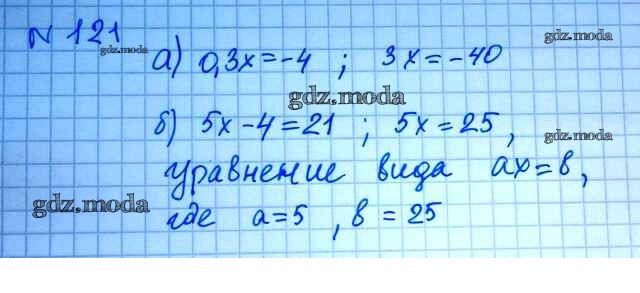 № 121
а) 0,3x = -4 ; 3x = -40
б) 5x - 4 = 21 ; 5x = 25 ,
уравнение вида ax = b ,
где a = 5 , b = 25
gdz.moda
gdz.moda
gdz.moda
gdz.moda
gdz.moda